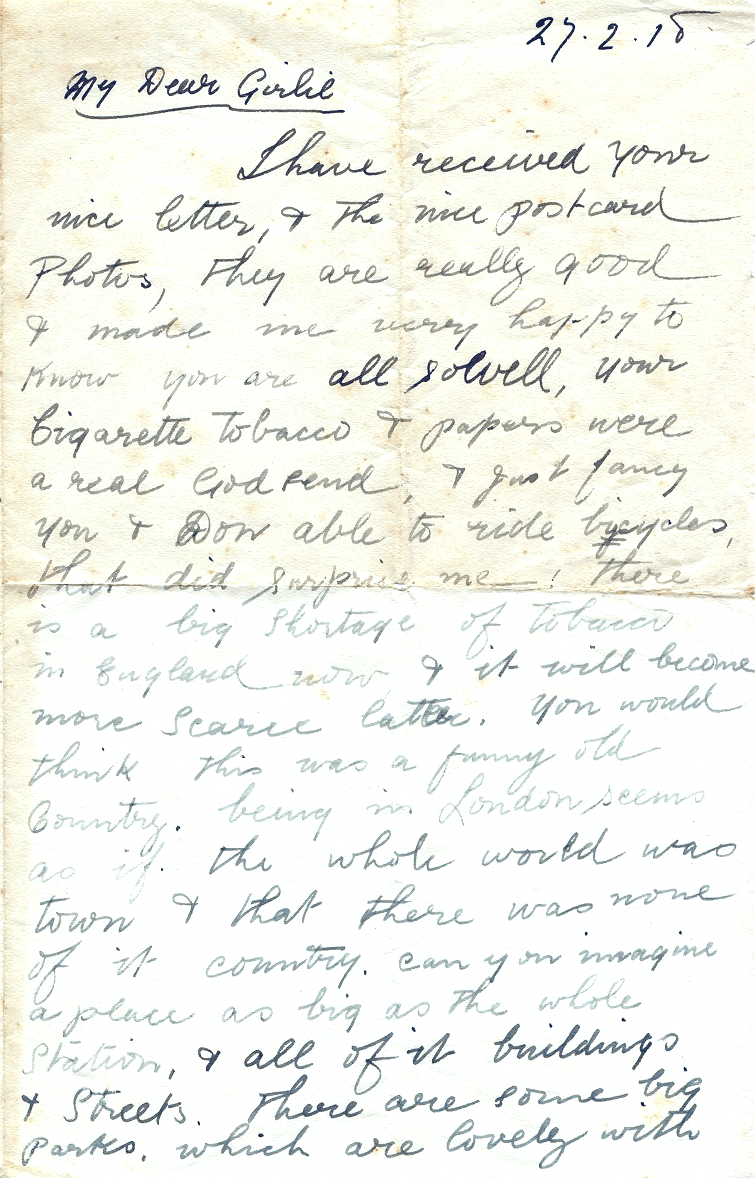 27.2.18
My Dear Girlie
I have received your
nice letter, & the nice postcard
Photos, they are really good
& made me very happy to
know you are all so well, your
Cigarette tobacco & papers were
a real God send, & just fancy
you & Don able to ride bicycles,
that did surprise me! there
is a big shortage of tobacco
in England now & it will become
more scarce latter. You would
think this was a funny old
Country. being in London seems
as if the whole world was
town & that there was none
of it country. can you imagine
a place as big as the whole
Station, & all of it buildings
& Streets. there are some big
Parks. which are lovely with